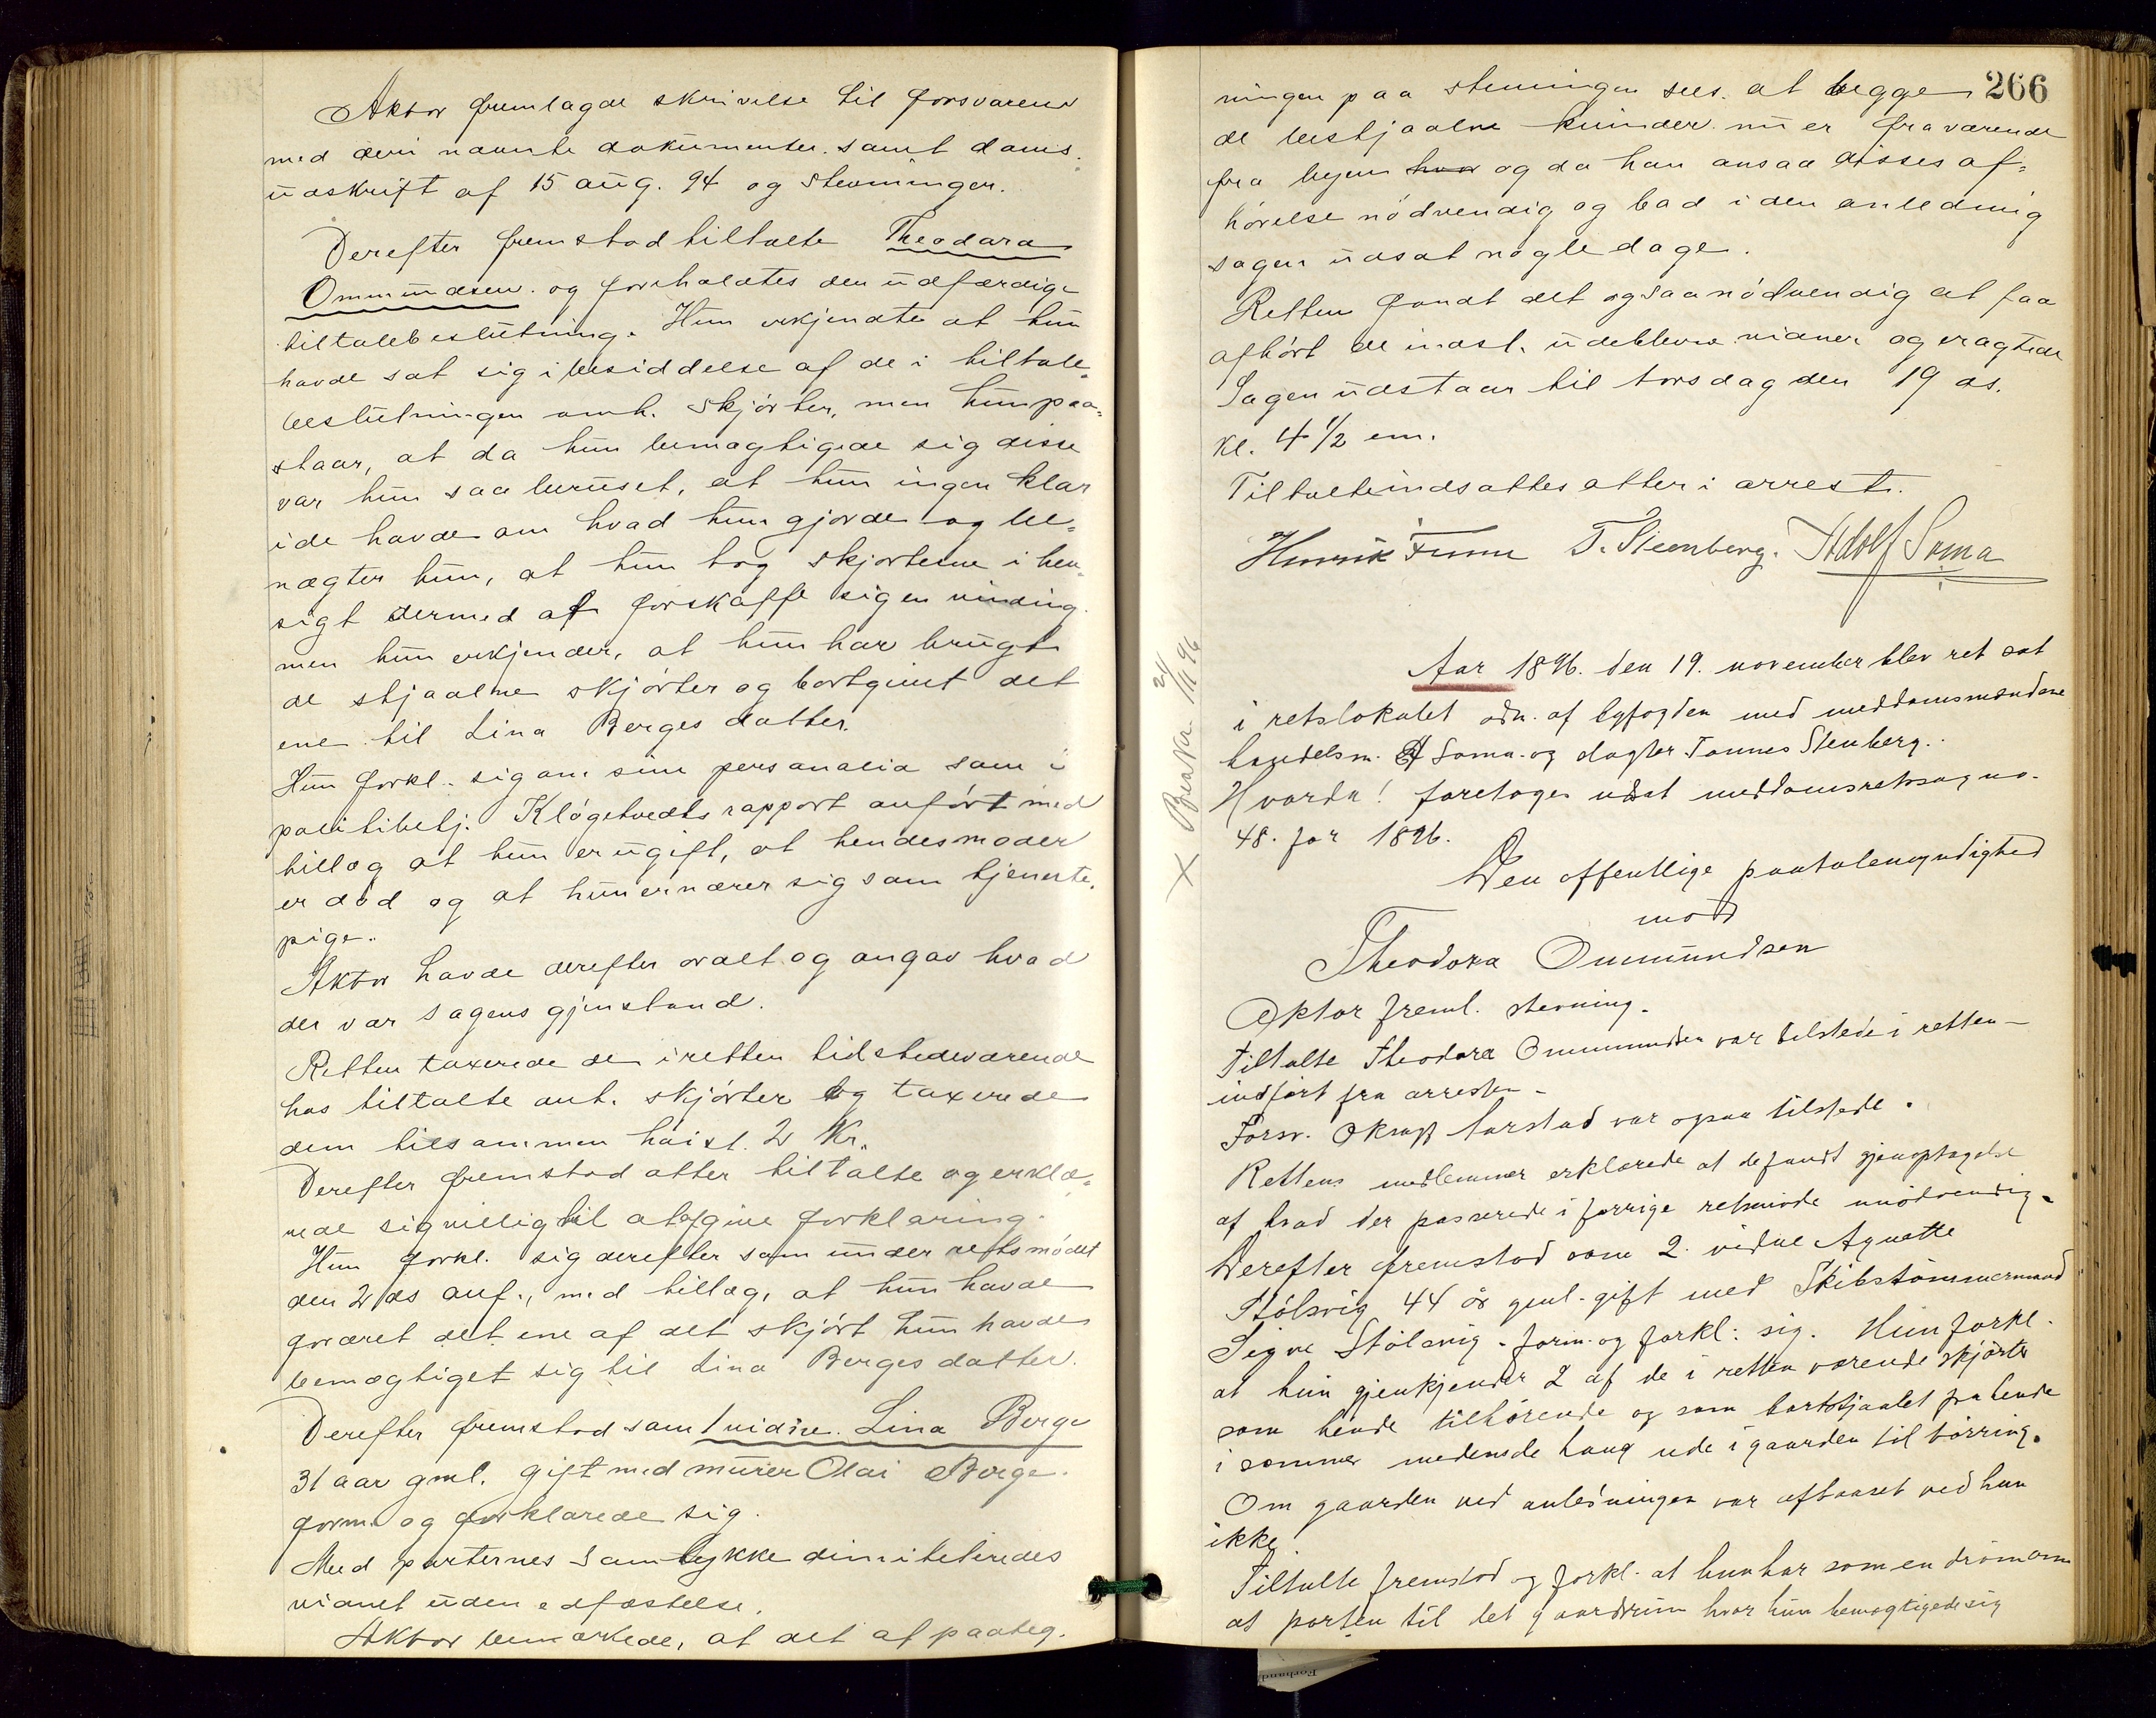 Aktor fremlagde skrivelse til forsvareren
med deri nævnte dokumenter samt doms-
udskrift af 15 aug. 94 og stevningen.
Derefter fremstod tiltalte Theodora
Ommundsen og foreholdtes den udfærdige
tiltalebeslutning. Hun erkjendte at hun
havde sat sig i besiddelse af de i tiltale-
beslutningen omh. skjörter, men hun paa-
staar, at da hun bemægtigede sig disse
var hun saa beruset, at hun ingen klar
ide havde om hvad hun gjorde og be-
nægter hun, at hun tog skjorterne i hen-
sigt dermed at forskaffe sig en vinding
men hun erkjender, at hun har brugt
de stjaalne skjörter og bortgivet det
ene til Lina Berges datter.
Hun forkl. sig om sine personalia som i
politibetj. Klögetvedts rapport anfört med
tillæg at hun er ugift, at hendes moder
er död og at hun ernærer sig som tjeneste-
pige.
Aktor havde derefter ordet og angav hvad
der var sagens gjenstand.
Retten taxerede de i retten tilstedeværende
hos tiltalte ant. skjörter og taxerede
dem tilsammen höist 2 Kr.
Derefter fremstod atter tiltalte og erklæ-
rede sig villig til at afgive forklaring.
Hun forkl. sig derefter som under retsmödet
den 2 ds anf., med tillæg, at hun havde
foræret det ene af det skjört hun havde
bemægtiget sig til Lina Berges datter.
Derefter fremstod som 1 vidne Lina Berge
31 aar gml. gift med murer Olai Berge.
form. og forklarede sig.
Med parternes samtykke dimitteredes
vidnet uden edfæstelse.
Aktor bemærkede, at det af paateg-
266
ningen paa stevningen sees at begge
de bestjaalne kvinder nu er fraværende
fra byen hvor og da han ansaa disses af-
hörelse nödvendig og bad i den anledning
sagen udsat nogle dage.
Retten fandt det ogsaa nödvendig at faa
afhört de indst. udeblevne vidner og eragtede
Sagen udstaar til torsdag den 19 ds.
Kl. 4 1/2 em.
Tiltalte indsattes atter i arrest.
Henrik Finne T. Steenberg. Adolf Soma
Aar 1896. den 19. november blev ret sat
i retslokalet adm. af byfogden med meddomsmændene
handelsm. A Soma og Tønnes Stenberg.
Hvorda! foretoges udsat meddomsretssag no.
48. for 1896.
X 24/11 96
Den offentlige paatalemyndighed
mod
Theodora Ommundsen
Aktor freml. stevning.
Tiltalte Theodora Ommundsen var tilstede i retten
indfört fra arresten
Forsv. Oksagf. Tarstad var ogsaa tilstede.
Rettens medlemmer erklærede at de fandt gjenoptagelse
af hvad der passerede i forrige retsmöde unödvendig.
Derefter fremstod som 2. vidne Agnette
Stölsvig 44 år gml. gift med Skibstömmermand
Sigve Stölsvig. form. og forkl: sig. Hun forkl.
at hun gjenkjender 2 af de i retten værende skjörter
som hende tilhörende og som bortstjaalet fra hende
i sommer medens de hang ude i gaarden til törring.
Om gaarden ved anledningen var aflaaset ved hun
ikke.
Tiltalte fremstod og forkl. at hun har som en dröm om
at porten til det gaardsrum hvor hun bemægtigede sig